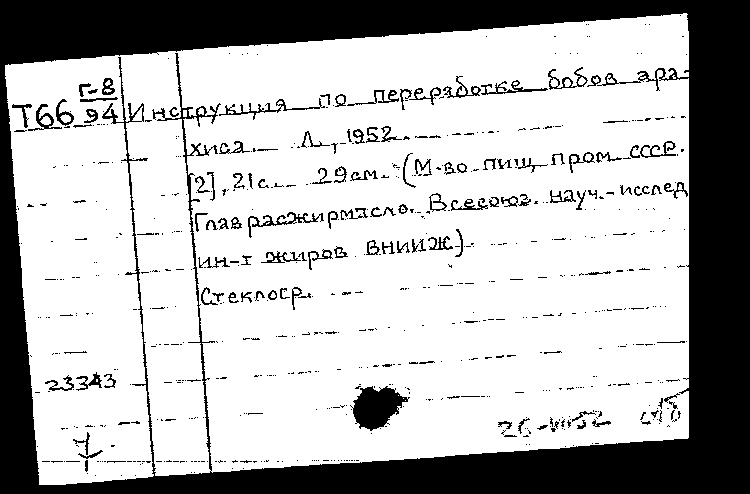 Г-8
Т66 94 Инструкция по переработке бобов ара-
хиса. Л., 1952.
[2], 21с. 29см. (М-во пищ. пром. СССР.
Главрасжирмасло. Всесоюз. науч.-исслед
ин-т жиров ВНИИЖ).
Стеклогр.
23343
26-VIII52